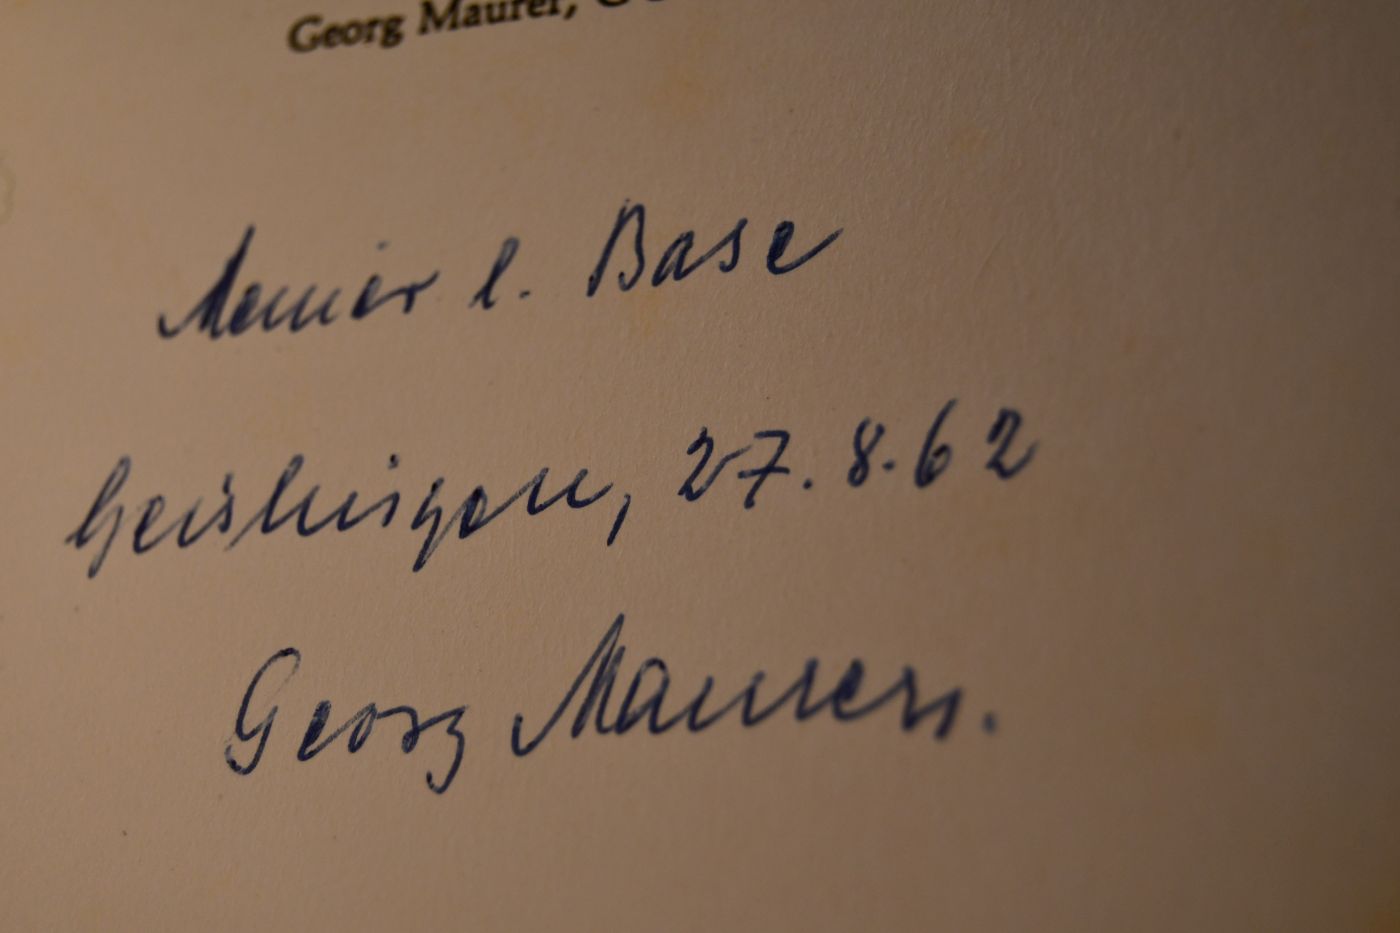 Georg Maurer,
Meiner l. Base
Geislingen, 27.8.62
Georg Maurer.